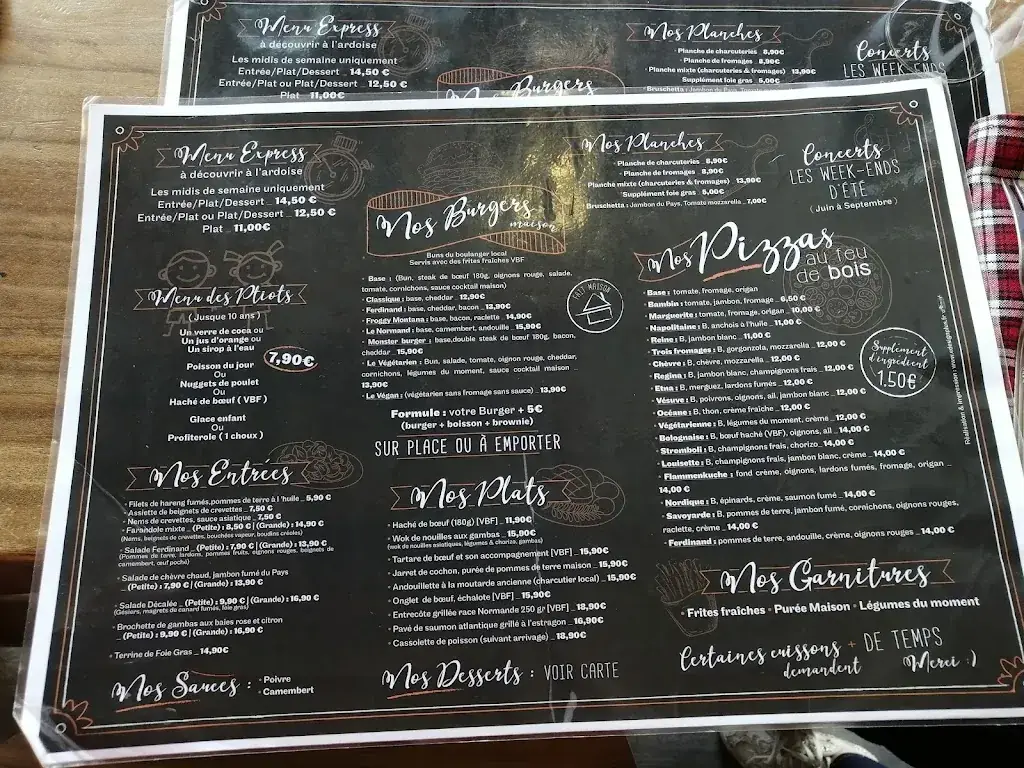 Menu Express
à découvrir à l'ardoise
Les midis de semaine uniquement
Entrée/Plat/Dessert _ 14,50 €
Entrée/Plat ou Plat/Dessert _ 12,50 €
Plat _ 11,00€
Burgers
Nos Planches
• Planche de charcuteries _ 8,90€
• Planche de fromages _ 8,90€
• Planche mixte (charcuteries & fromages) _ 13,90€
Supplément foie gras _ 5,00€
Bruschetta : Jambon du Pays, Tomate
Concerts
LES WEEK-ENDS
Menu Express
à découvrir à l'ardoise
Les midis de semaine uniquement
Entrée/Plat/Dessert _ 14,50 €
Entrée/Plat ou Plat/Dessert _ 12,50 €
Plat _ 11,00€
Menu des Ptiots
( Jusque 10 ans )
Un verre de coca ou
Un jus d'orange ou
Un sirop à l'eau
7,90€
Poisson du jour
Ou
Nuggets de poulet
Ou
Haché de bœuf ( VBF )
Glace enfant
Ou
Profiterole ( 1 choux )
Nos Entrées
• Filets de hareng fumés,pommes de terre à l'huile _ 5,90 €
• Assiette de beignets de crevettes _ 7,50 €
• Nems de crevettes, sauce asiatique _ 7,50 €
• Farandole mixte _ (Petite) : 8,50 € | (Grande) : 14,90 €
(Nems, beignets de crevettes, bouchées vapeur, boudins créoles)
• Salade Ferdinand _ (Petite) : 7,90 € | (Grande) : 13,90 €
(Pommes de terre, lardons, pommes fruits, oignons rouges, beignets de
camembert, œuf poché)
• Salade de chèvre chaud, jambon fumé du Pays
_ (Petite) : 7,90 € | (Grande) : 13,90 €
• Salade Décalée _ (Petite) : 9,90 € | (Grande) : 16,90 €
(Gésiers, magrets de canard fumés, foie gras)
• Brochette de gambas aux baies rose et citron
_ (Petite) : 9,90 € | (Grande) : 16,90 €
• Terrine de Foie Gras _ 14,90€
Nos Sauces :
• Poivre
• Camembert
Nos Burgers
maison
Buns du boulanger local
Servis avec des frites fraîches VBF
• Base : (Bun, steak de bœuf 180g, oignons rouge, salade,
tomate, cornichons, sauce cocktail maison)
• Classique : base, cheddar _ 12,90€
• Ferdinand : base, cheddar, bacon _ 13,90€
• Froggy Montana : base, bacon, raclette _ 14,90€
• Le Normand : base, camembert, andouille _ 15,90€
• Monster burger : base,double steak de bœuf 180g, bacon,
cheddar _ 15,90€
• Le Végétarien : Bun, salade, tomate, oignon rouge, cheddar,
cornichons, légumes du moment, sauce cocktail maison _
13,90€
• Le Végan : (végétarien sans fromage sans sauce) _ 13,90€
FAIT MAISON
Formule : votre Burger + 5€
(burger + boisson + brownie)
SUR PLACE OU À EMPORTER
Nos Plats
• Haché de bœuf (180g) [VBF] _ 11,90€
• Wok de nouilles aux gambas _ 15,90€
(wok de nouilles asiatiques, légumes & chorizo, gambas)
• Tartare de bœuf et son accompagnement [VBF] _ 15,90€
• Jarret de cochon, purée de pommes de terre maison _ 15,90€
• Andouillette à la moutarde ancienne (charcutier local) _ 15,90€
• Onglet de bœuf, échalote [VBF] _ 15,90€
• Entrecôte grillée race Normande 250 gr [VBF] _ 18,90€
• Pavé de saumon atlantique grillé à l'estragon _ 16,90€
• Cassolette de poisson (suivant arrivage) _ 18,90€
Nos Desserts : VOIR CARTE
Nos Planches
• Planche de charcuteries _ 8,90€
• Planche de fromages _ 8,90€
Planche mixte (charcuteries & fromages) _ 13,90€
Supplément foie gras _ 5,00€
Bruschetta : Jambon du Pays, Tomate mozzarella _ 7,00€
Concerts
LES WEEK-ENDS
D'ÉTÉ
( Juin à Septembre )
Nos Pizzas
au feu
de bois
Base : tomate, fromage, origan
• Bambin : tomate, jambon, fromage _ 6,50 €
• Marguerite : tomate, fromage, origan _ 10,00 €
• Napolitaine : B, anchois à l'huile _ 11,00 €
• Reine : B, jambon blanc _ 11,00 €
• Trois fromages : B, gorgonzola, mozzarella _ 12,00 €
• Chèvre : B, chèvre, mozzarella _ 12,00 €
• Regina : B, jambon blanc, champignons frais _ 12,00 €
• Etna : B, merguez, lardons fumés _ 12,00 €
• Vésuve : B, poivrons, oignons, ail, jambon blanc _ 12,00 €
• Océane : B, thon, crème fraiche _ 12,00 €
• Végétarienne : B, légumes du moment, crème _ 12,00 €
• Bolognaise : B, bœuf haché (VBF), oignons, ail _ 14,00 €
• Stromboli : B, champignons frais, chorizo_ 14,00 €
• Louisette : B, champignons frais, jambon blanc, crème _ 14,00 €
• Flammenkuche : fond crème, oignons, lardons fumés, fromage, origan _
14,00 €
• Nordique : B, épinards, crème, saumon fumé _ 14,00 €
• Savoyarde : B, pommes de terre, jambon fumé, cornichons, oignons rouges,
raclette, crème _ 14,00 €
• Ferdinand : pommes de terre, andouille, crème, oignons rouges _ 14,00 €
Supplément
d'ingrédient
1.50€
Nos Garnitures
• Frites fraîches • Purée Maison • Légumes du moment
Certaines cuissons + DE TEMPS
demandent Merci :)
Réalisation & Impression